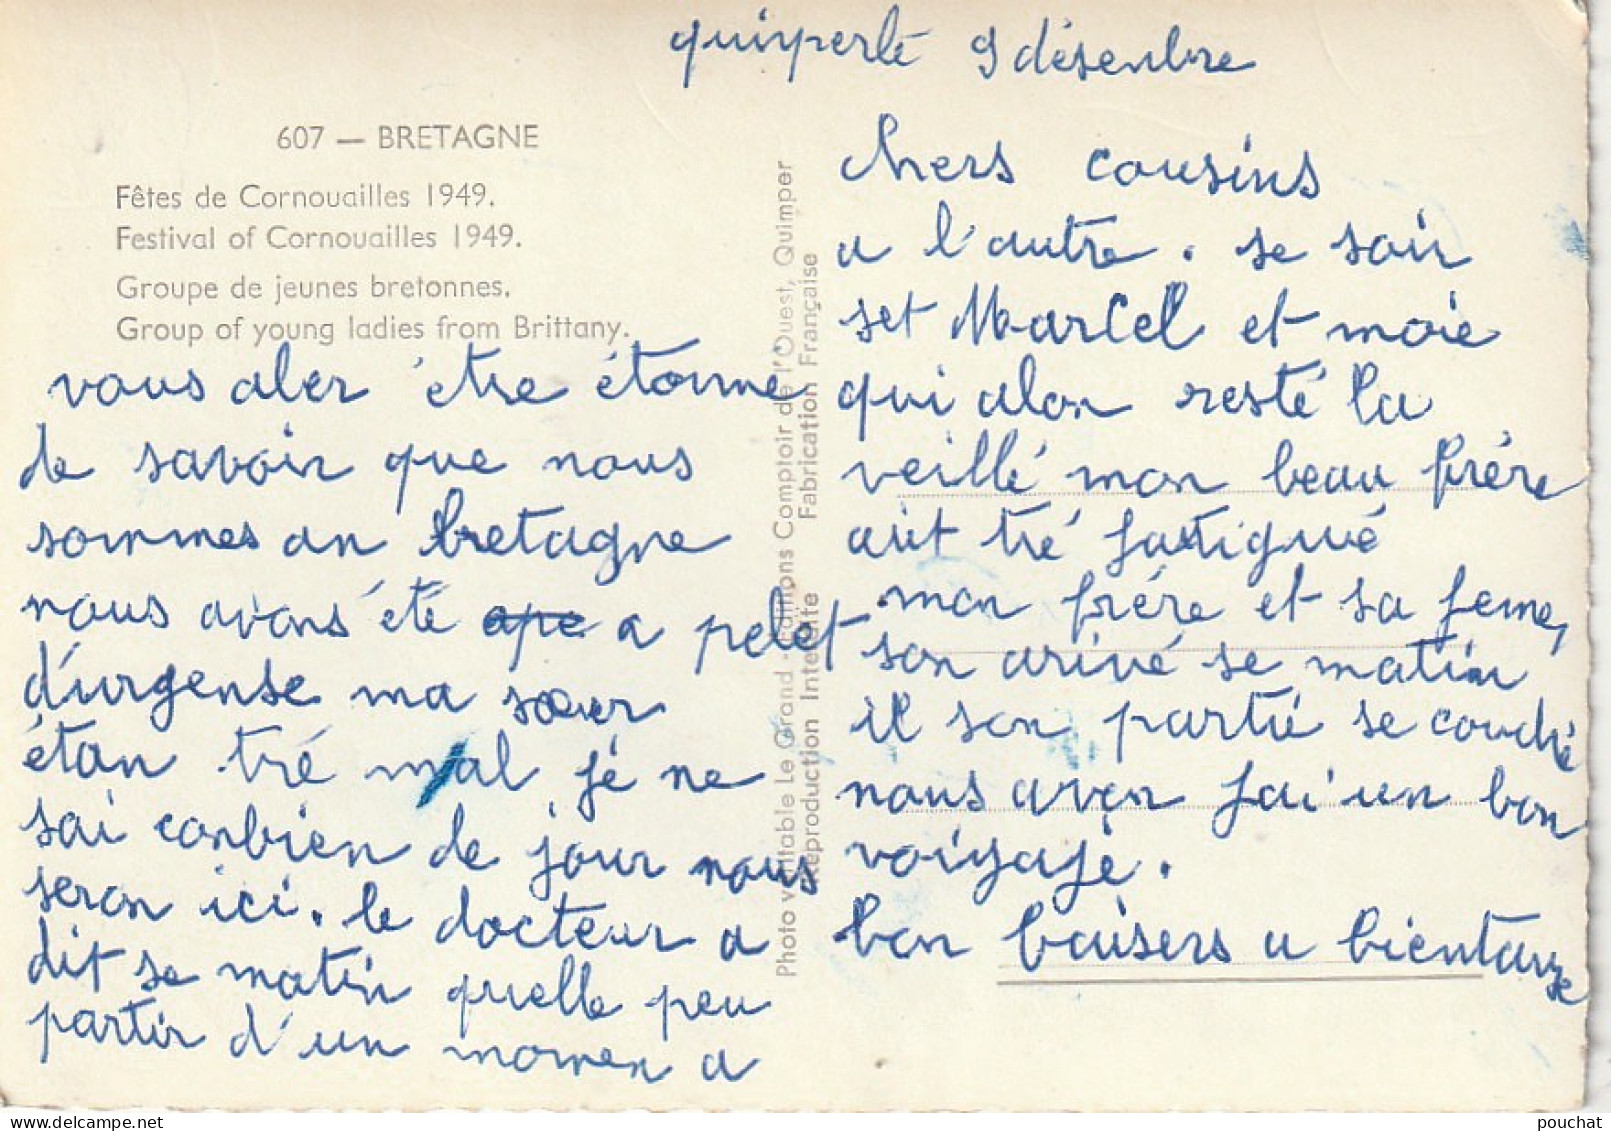 quinperlé 9 désenbre
607 — BRETAGNE
Fêtes de Cornouailles 1949.
Festival of Cornouailles 1949.
Groupe de jeunes bretonnes.
Group of young ladies from Brittany.
chers cousins
vous aler être étonne
de savoir que nous
sommes an bretagne
nous avons été ape a pelet
d'urgense ma sœur
étan tré mal jé ne
sai conbien de jour nous
seron ici. le docteur a
dit se matin quelle peu
partir d'un momen a
a l'autre. se soir
set Marcel et moie
qui alon resté la
veillé mon beau frére
aiit tré fatigué
mon frére et sa feme,
son arivé se matin
il son partié se couché
nous avon fai un bon
voiyaje.
bon baisers a bientauxe
Photo véritable Le Grand - Editions Comptoir de l'Ouest, Quimper
Reproduction Interdite Fabrication Française
pouchat